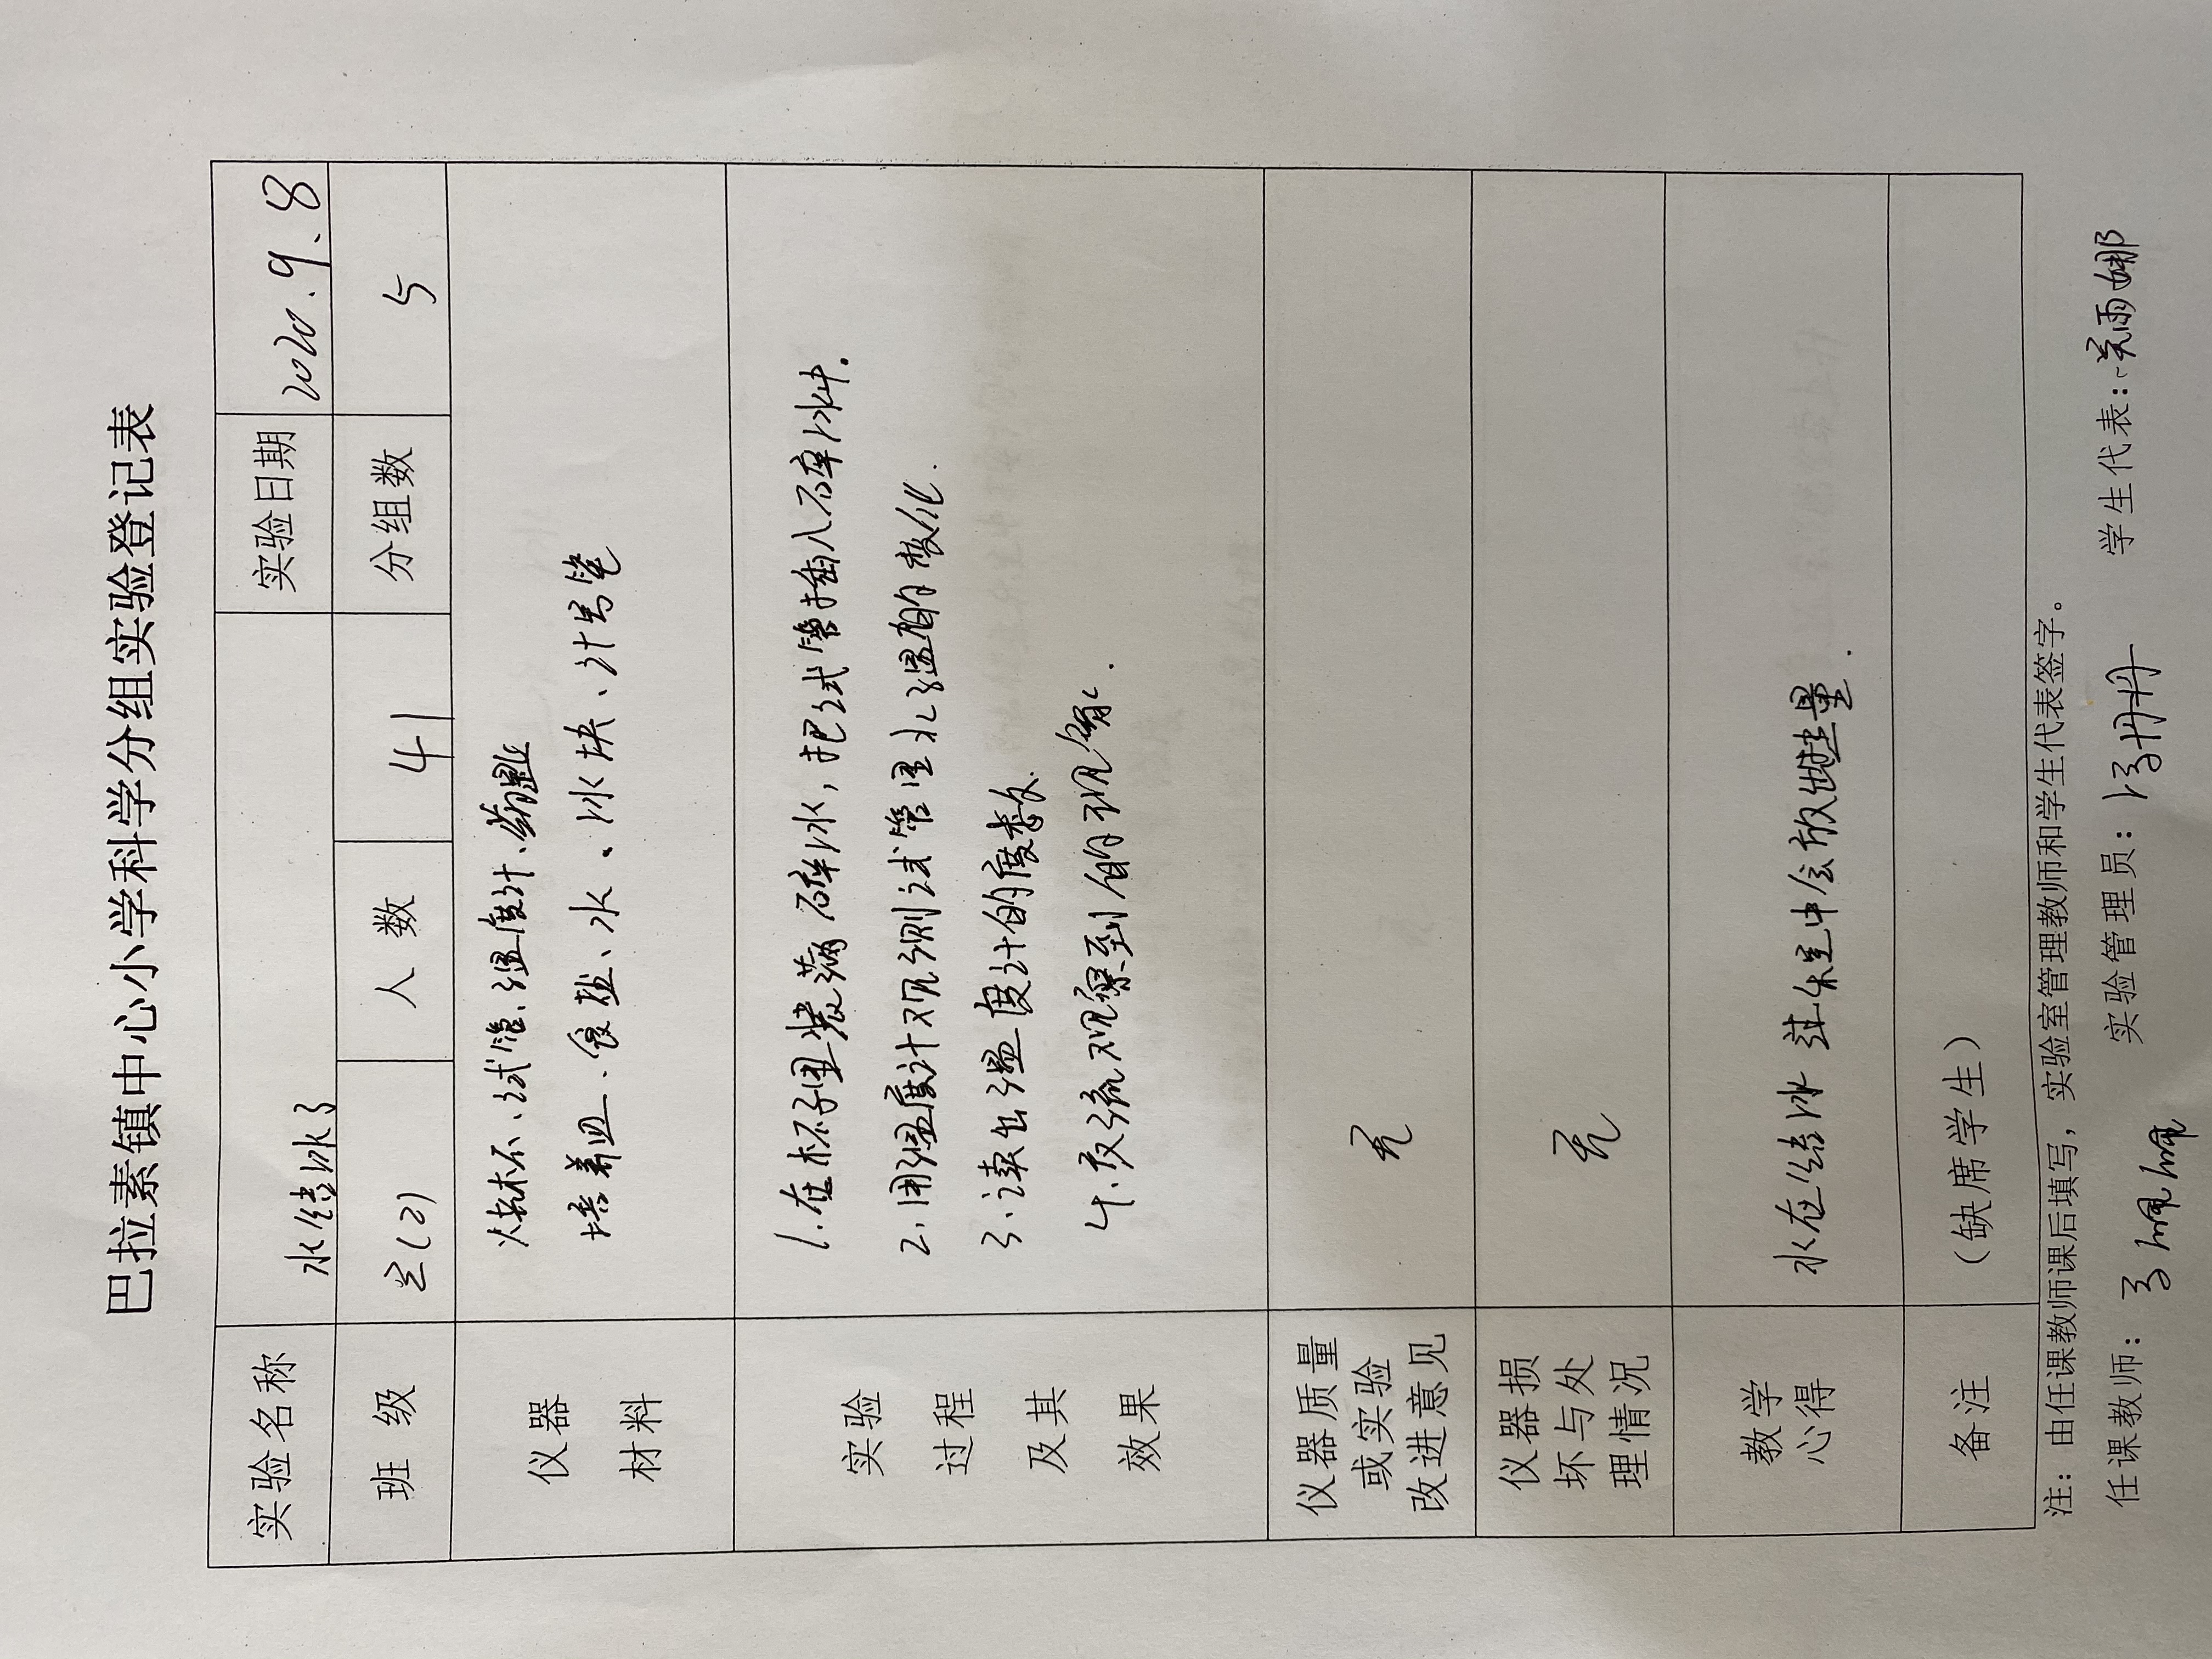 巴拉素镇中心小学科学分组实验登记表
实验名称 水结冰了 实验日期 2020.9.8
班 级 三(2) 人 数 41 分组数 5
仪器材料 烧杯、试管、温度计、
培养皿、食盐、水、冰块、计
实验过程及其效果 1.在杯子里装满碎冰,把试管插入碎冰中.
2.用温度计观测试管里水温的变化.
3.读出温度计的度数.
4.交流观察到的现象.
仪器质量或实验改进意见 无
仪器损坏与处理情况 无
教学心得 水在结冰过程中会放出热量.
备注 (缺席学生)
注:由任课教师课后填写,实验室管理教师和学生代表签字。
任课教师: 实验管理员: 学生代表: 雨娜